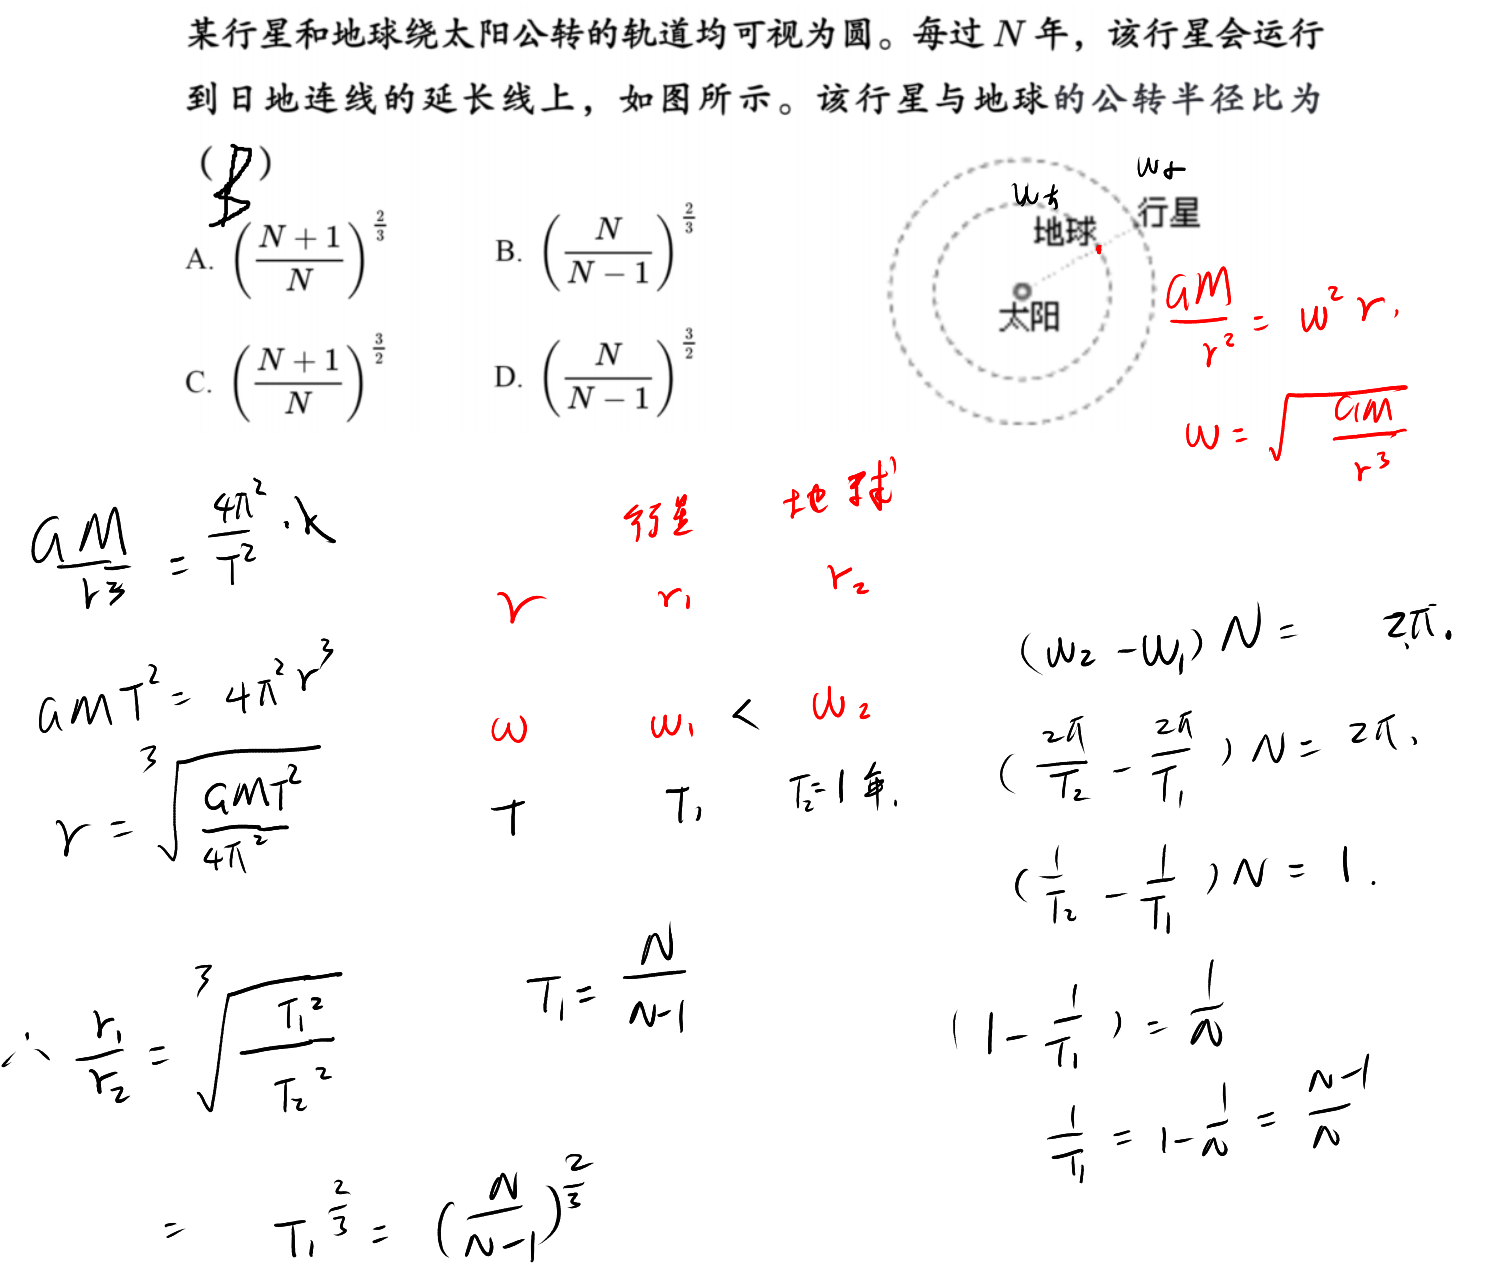 某行星和地球绕太阳公转的轨道均可视为圆。每过 N 年，该行星会运行
到日地连线的延长线上，如图所示。该行星与地球的公转半径比为
( B )
A. \left(\frac{N+1}{N}\right)^{\frac{2}{3}}
B. \left(\frac{N}{N-1}\right)^{\frac{2}{3}}
C. \left(\frac{N+1}{N}\right)^{\frac{3}{2}}
D. \left(\frac{N}{N-1}\right)^{\frac{3}{2}}
地球
行星
太阳
\frac{GM}{r^2} = ω^2 r.
ω = \sqrt{\frac{GM}{r^3}}
\frac{GM}{r^3} = \frac{4π^2}{T^2}
GMT^2 = 4π^2 r^3
r = \sqrt[3]{\frac{GMT^2}{4π^2}}
行星 地球
r r_1 r_2
ω ω_1 < ω_2
T T_1 T_2=1年.
(ω_2 - ω_1) N = 2π.
(\frac{2π}{T_2} - \frac{2π}{T_1}) N = 2π.
(\frac{1}{T_2} - \frac{1}{T_1}) N = 1.
(1 - \frac{1}{T_1}) = \frac{1}{N}
\frac{1}{T_1} = 1 - \frac{1}{N} = \frac{N-1}{N}
T_1 = \frac{N}{N-1}
∴ \frac{r_1}{r_2} = \sqrt[3]{\frac{T_1^2}{T_2^2}}
= T_1^{\frac{2}{3}} = (\frac{N}{N-1})^{\frac{2}{3}}